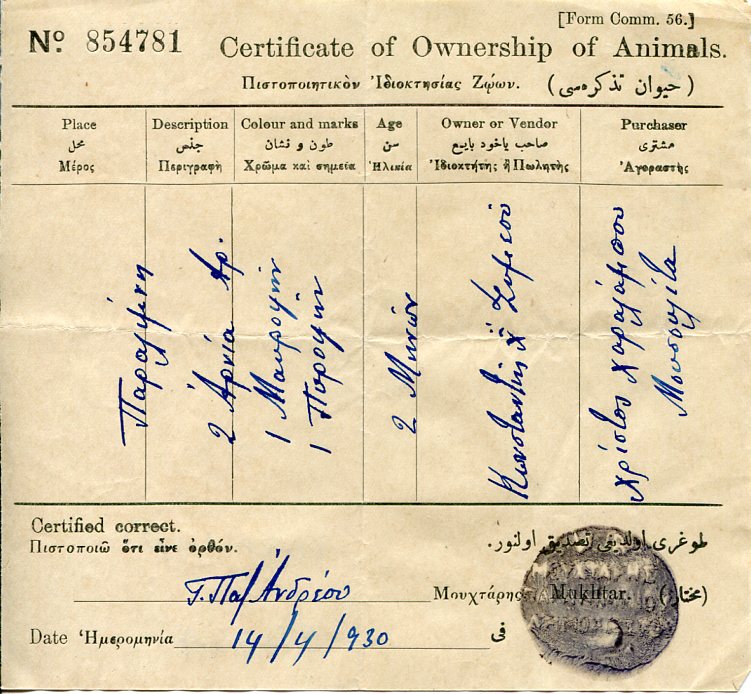 [Form Comm. 56.]
Nº 854781 Certificate of Ownership of Animals.
Πιστοποιητικὸν Ἰδιοκτησίας Ζῴων. (حیوان تذکره‌سی)
Place Description Colour and marks Age Owner or Vendor Purchaser
محل جنس طون و نشان سن صاحب یاخود بایع مشتری
Μέρος Περιγραφὴ Χρῶμα καὶ σημεῖα Ἡλικία Ἰδιοκτήτης ἢ Πωλητὴς Ἀγοραστὴς
Παραλίμνη
2 Ἀρνία Ἀρ.
1
1
2 Μηνῶν
Κωνσταντῆς Χ"
Χρίστος Χαραλάμπου
Certified correct.
Πιστοποιῶ ὅτι εἶνε ὀρθόν. طوغری اولدیغی تصدیق اولنور.
Ἀνδρέου Μουχτάρης Mukhtar. (مختار)
Date Ἡμερομηνία 14/4/930 فی